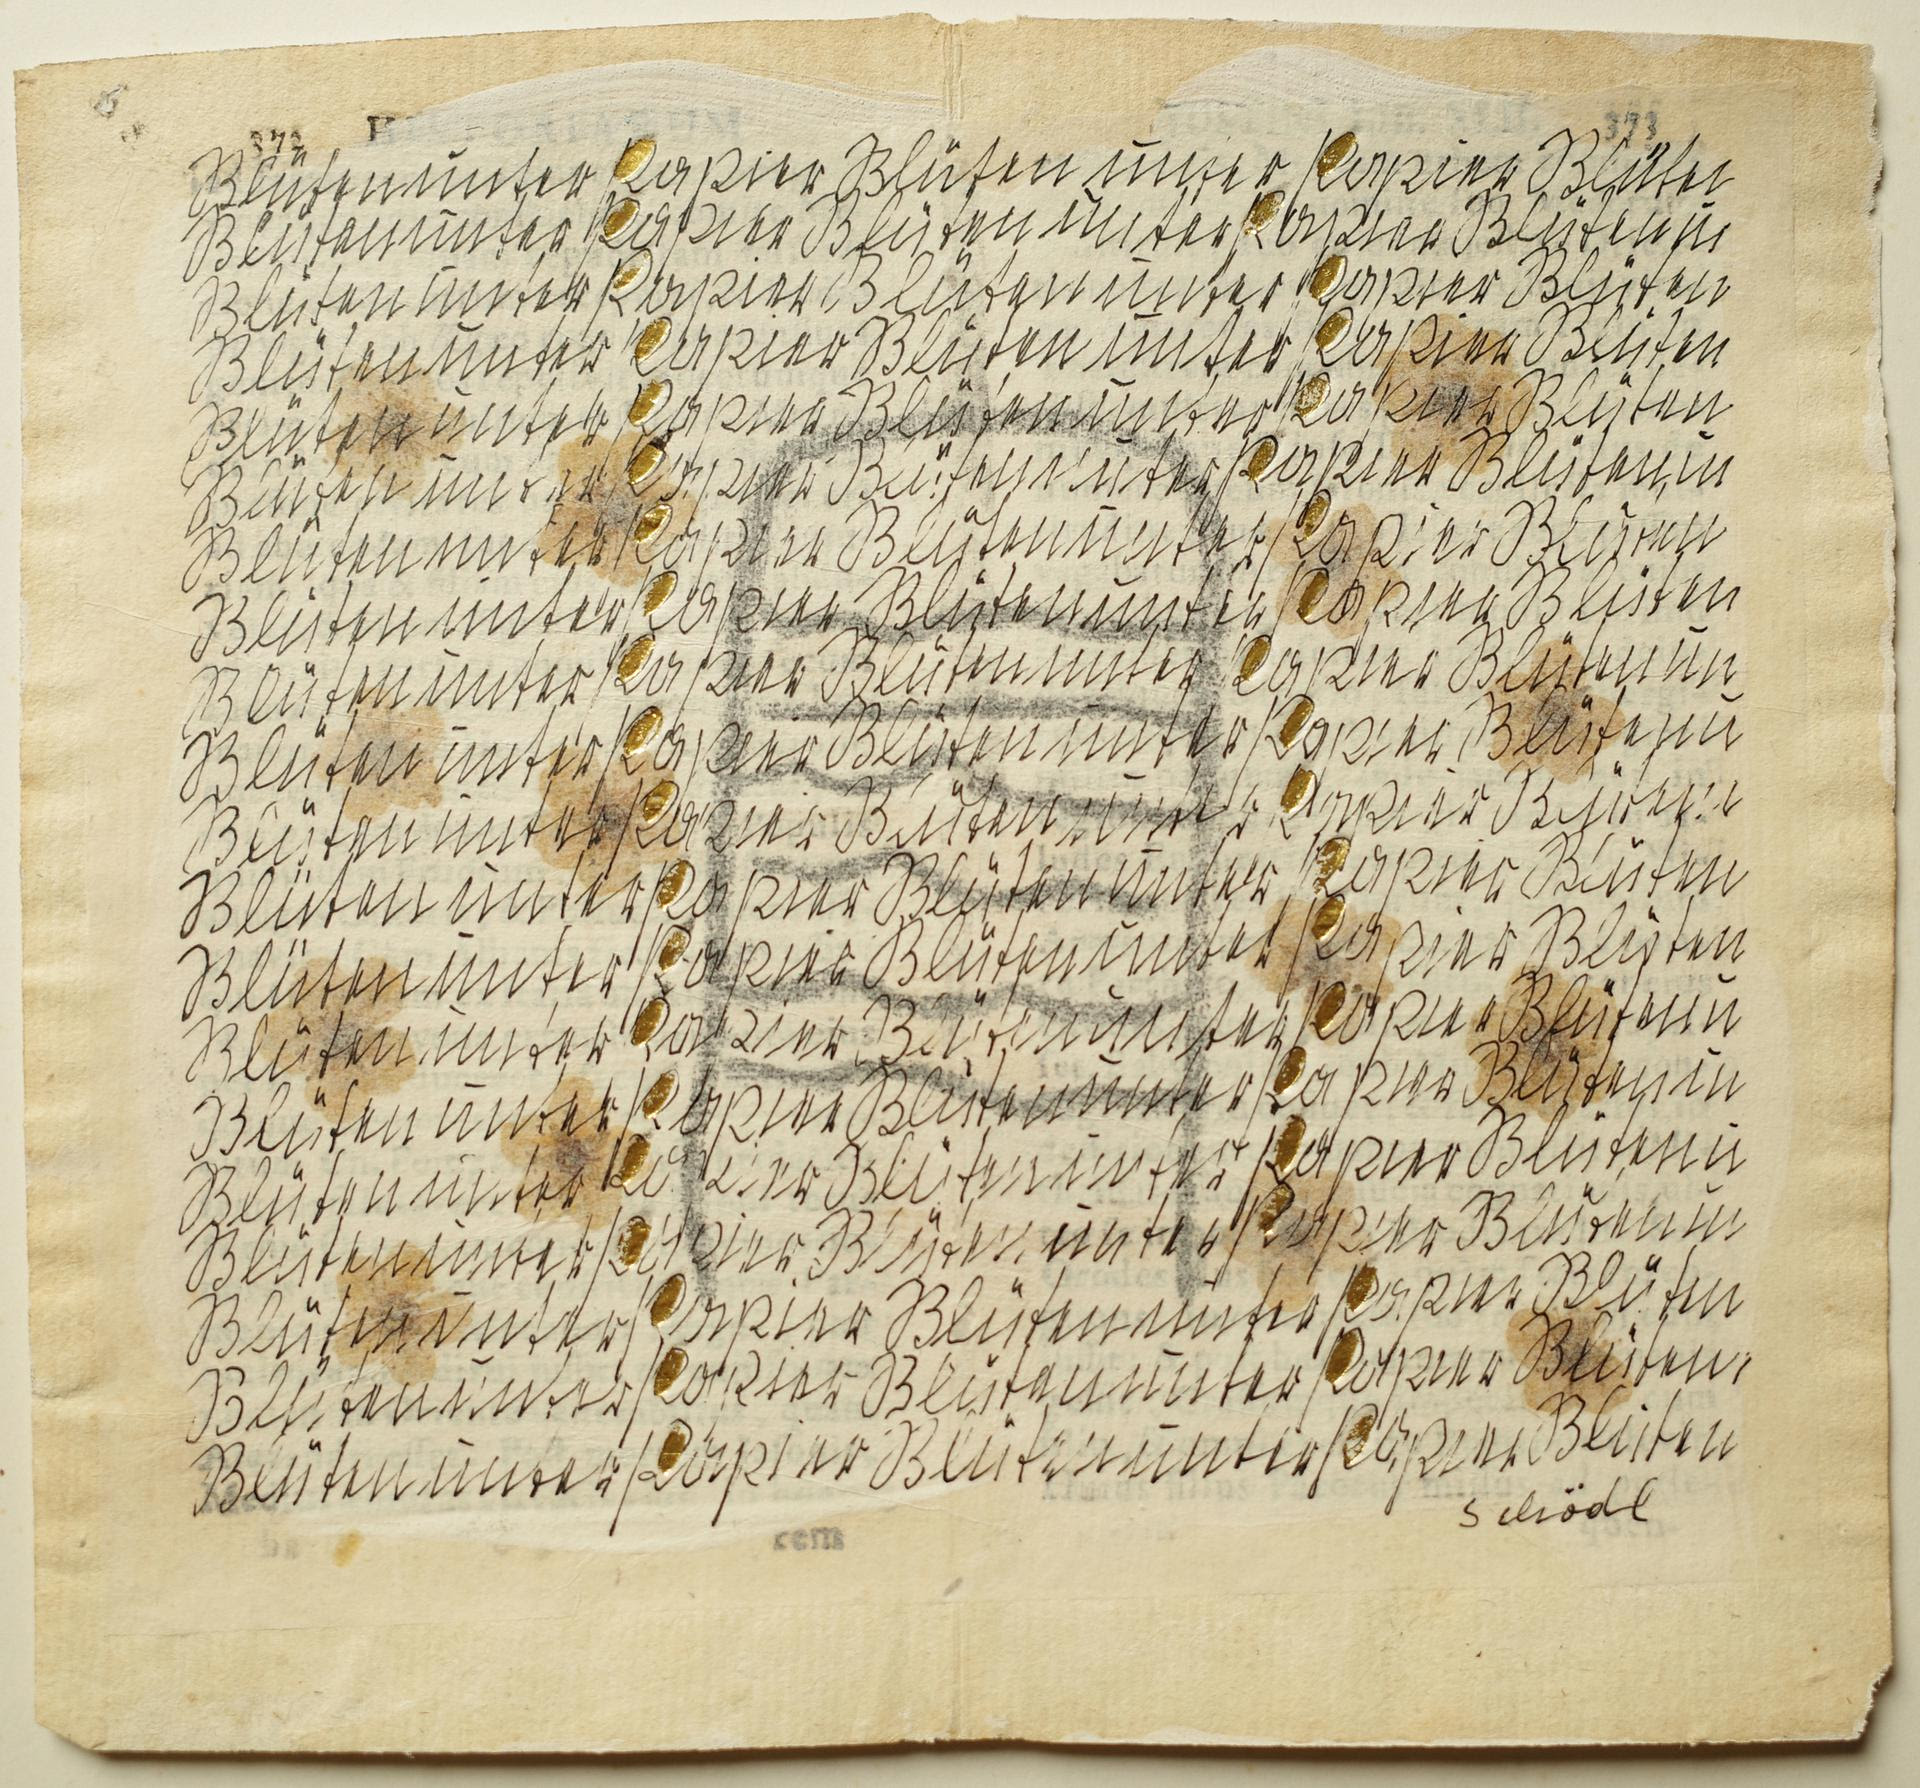 373
Blüten unter Papier Blüten unter Papier Blüten
Blüten unter Papier Blüten unter Papier Blüten u
Blüten unter Papier Blüten unter Papier Blüten
Blüten unter Papier Blüten unter Papier Blüten
Blüten unter Papier Blüten unter Papier Blüten
Blüten unter Papier Blüten unter Papier Blüten u
Blüten unter Papier Blüten unter Papier Blüten
Blüten unter Papier Blüten unter Papier Blüten
Blüten unter Papier Blüten unter Papier Blüten un
Blüten unter Papier Blüten unter Papier Blüten u
Blüten unter Papier Blüten unter Papier Blüten
Blüten unter Papier Blüten unter Papier Blüten
Blüten unter Papier Blüten unter Papier Blüten
Blüten unter Papier Blüten unter Papier Blüten u
Blüten unter Papier Blüten unter Papier Blüten u
Blüten unter Papier Blüten unter Papier Blüten u
Blüten unter Papier Blüten unter Papier Blüten u
Blüten unter Papier Blüten unter Papier Blüten
Blüten unter Papier Blüten unter Papier Blüten
Blüten unter Papier Blüten unter Papier Blüten
schödl